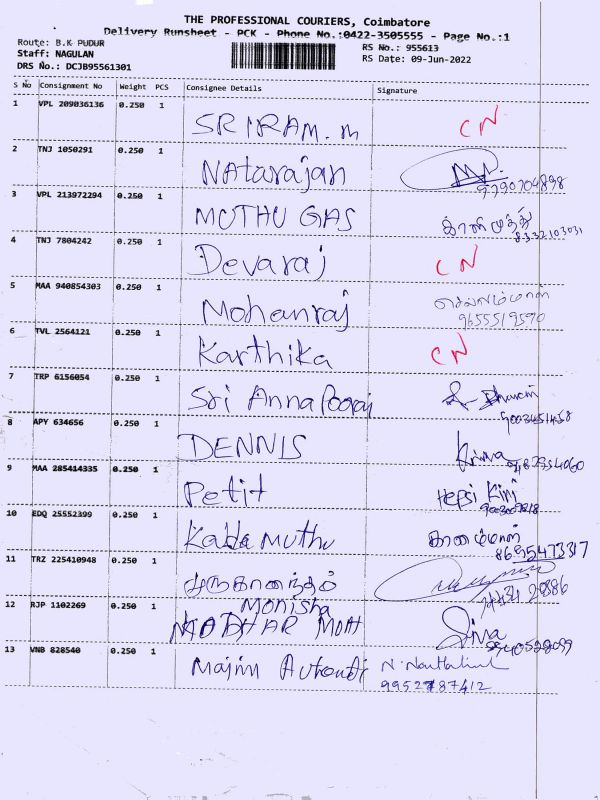 THE PROFESSIONAL COURIERS, Coimbatore
Delivery Runsheet - PCK - Phone No.:0422-3505555 - Page No.:1
Route: B.K PUDUR
RS No.: 955613
Staff: NAGULAN
RS Date: 09-Jun-2022
DRS No.: DCJB95561301
S No Consignment No Weight PCS Consignee Details Signature
1 VPL 209036136 0.250 1 SRIRAM. m CN
2 TNJ 1050291 0.250 1 NAtarajan
9790704898
3 VPL 213972294 0.250 1 MUTHU GAS காளிமுத்து
8332103031
4 TNJ 7804242 0.250 1 Devaraj CN
5 MAA 940854303 0.250 1 Mohanraj
9655519590
6 TVL 2564121 0.250 1 Karthika CN
7 TRP 6156054 0.250 1 Sri Anna Pooraj
9003451458
8 APY 634656 0.250 1 DENNIS
9 MAA 285414335 0.250 1 Petit Hepsi Kinj
10 EDQ 25552399 0.250 1 Kada Muthu
8695473317
11 TRZ 225410948 0.250 1
12 RJP 1102269 0.250 1 Monisha
MADHAR MOH Siva
9940528099
13 VNB 828540 0.250 1 Majini
9952787412